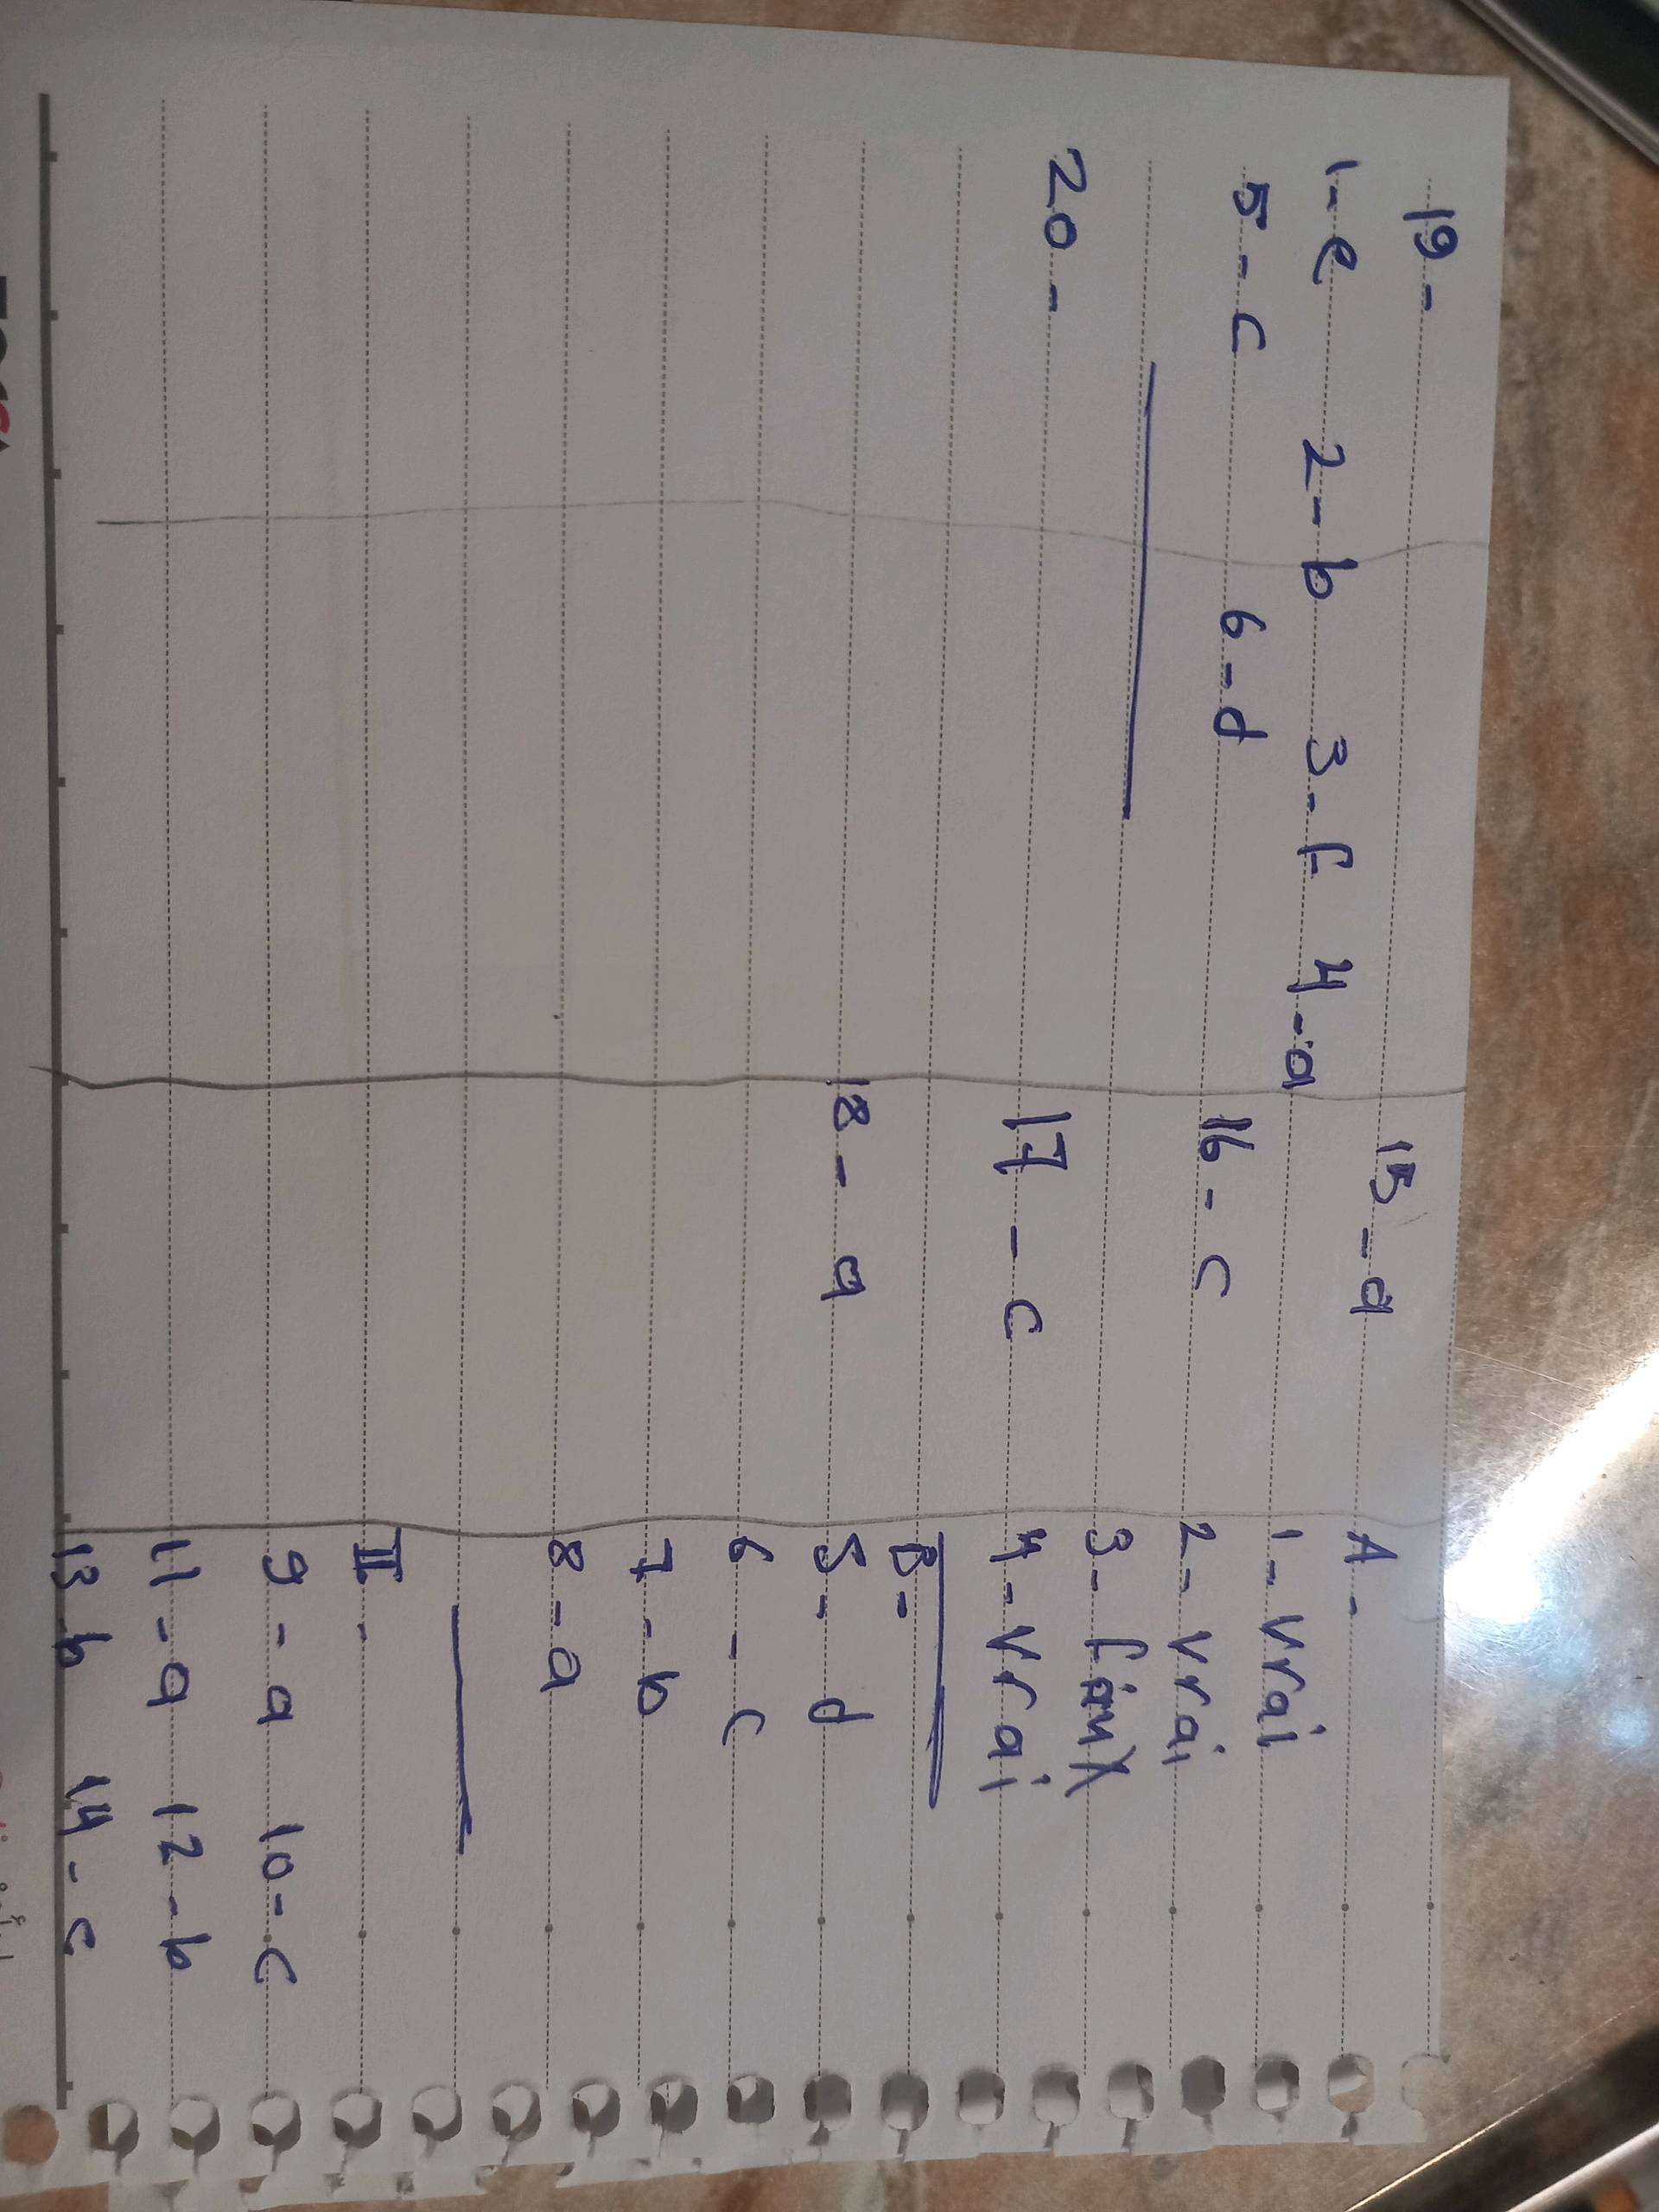 19 -
1 - e 2 - b 3 - f 4 - a
5 - c 6 - d
20 -
15 - a
16 - c
17 - c
18 - a
A -
1 - Vrai
2 - Vrai
3 - faux
4 - Vrai
B -
5 - d
6 - c
7 - b
8 - a
II -
9 - a 10 - c
11 - a 12 - b
13 - b 14 - c